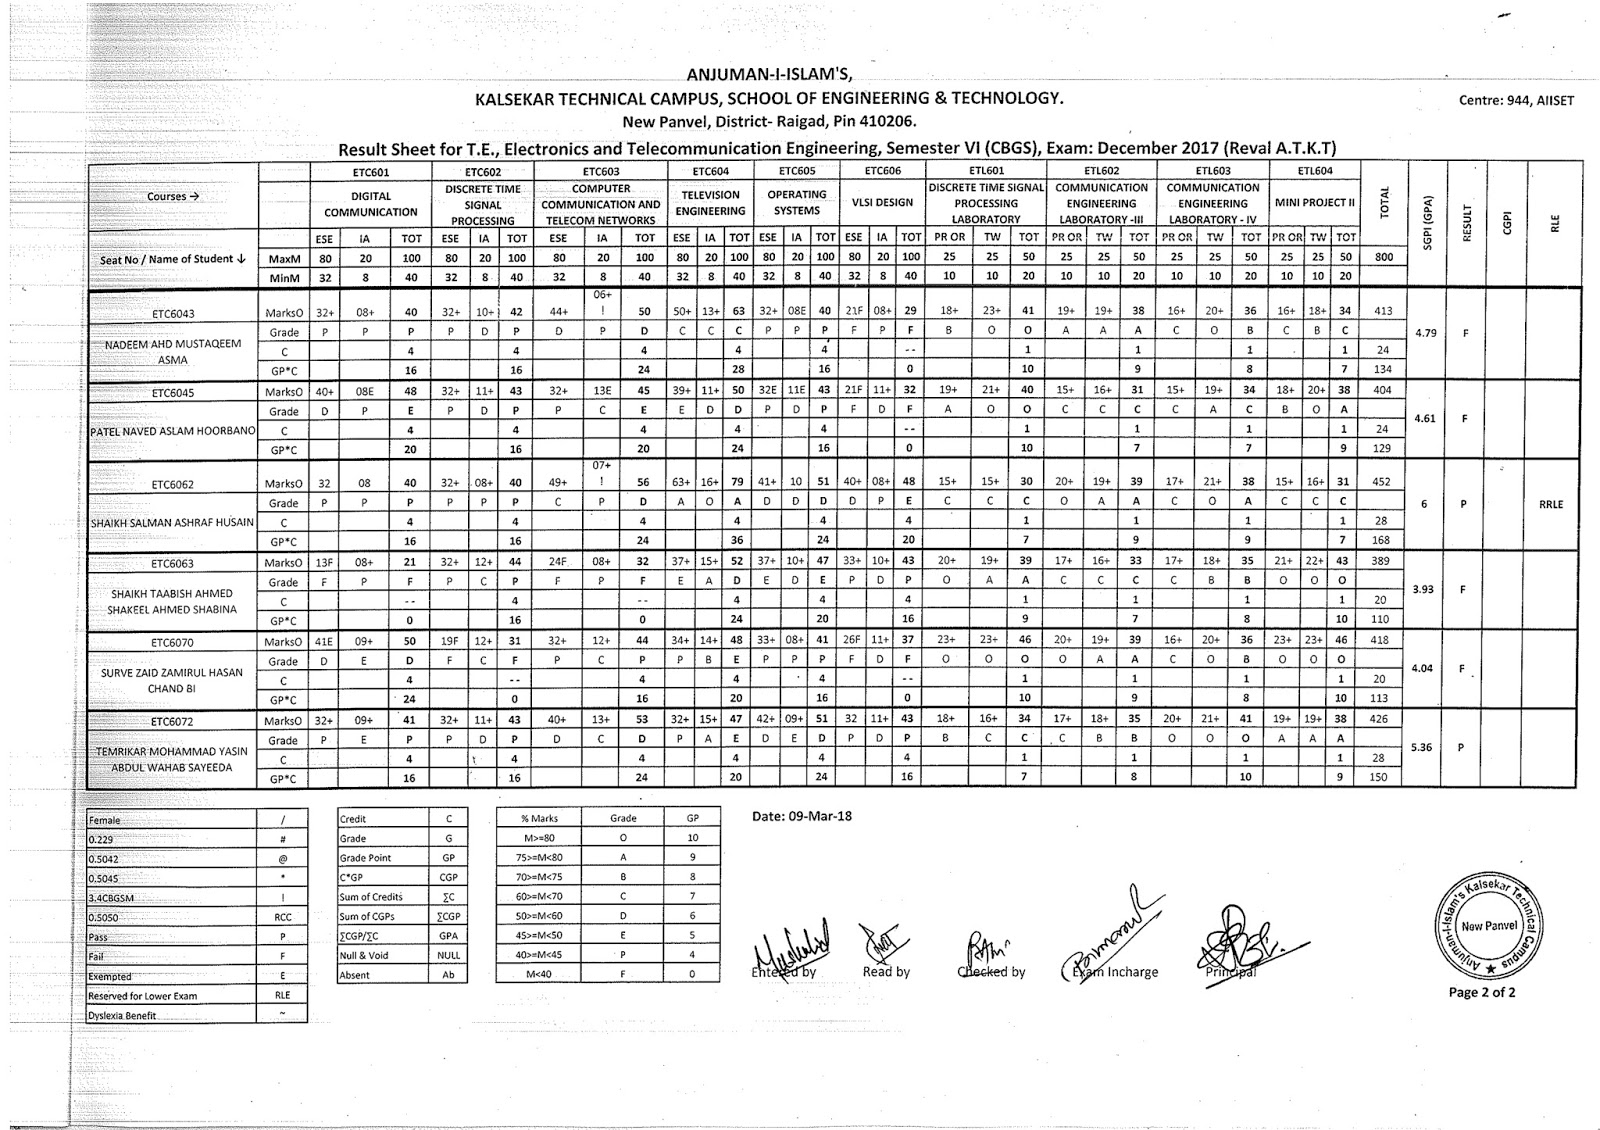 ANJUMAN-I-ISLAM'S,
KALSEKAR TECHNICAL CAMPUS, SCHOOL OF ENGINEERING & TECHNOLOGY.
Centre: 944, AIISET
New Panvel, District- Raigad, Pin 410206.
Result Sheet for T.E., Electronics and Telecommunication Engineering, Semester VI (CBGS), Exam: December 2017 (Reval A.T.K.T)
Courses → ETC601 ETC602 ETC603 ETC604 ETC605 ETC606 ETL601 ETL602 ETL603 ETL604 TOTAL SGPI (GPA) RESULT CGPI RLE
DIGITAL COMMUNICATION DISCRETE TIME SIGNAL PROCESSING COMPUTER COMMUNICATION AND TELECOM NETWORKS TELEVISION ENGINEERING OPERATING SYSTEMS VLSI DESIGN DISCRETE TIME SIGNAL PROCESSING LABORATORY COMMUNICATION ENGINEERING LABORATORY -III COMMUNICATION ENGINEERING LABORATORY - IV MINI PROJECT II
ESE IA TOT ESE IA TOT ESE IA TOT ESE IA TOT ESE IA TOT ESE IA TOT PR OR TW TOT PR OR TW TOT PR OR TW TOT PR OR TW TOT
Seat No / Name of Student ↓ MaxM 80 20 100 80 20 100 80 20 100 80 20 100 80 20 100 80 20 100 25 25 50 25 25 50 25 25 50 25 25 50 800
MinM 32 8 40 32 8 40 32 8 40 32 8 40 32 8 40 32 8 40 10 10 20 10 10 20 10 10 20 10 10 20
ETC6043 MarksO 32+ 08+ 40 32+ 10+ 42 44+ 06+ ! 50 50+ 13+ 63 32+ 08E 40 21F 08+ 29 18+ 23+ 41 19+ 19+ 38 16+ 20+ 36 16+ 18+ 34 413
NADEEM AHD MUSTAQEEM ASMA Grade P P P P D P D P D C C C P P P F P F B O O A A A C O B C B C 4.79 F
C 4 4 4 4 4 -- 1 1 1 1 24
GP*C 16 16 24 28 16 0 10 9 8 7 134
ETC6045 MarksO 40+ 08E 48 32+ 11+ 43 32+ 13E 45 39+ 11+ 50 32E 11E 43 21F 11+ 32 19+ 21+ 40 15+ 16+ 31 15+ 19+ 34 18+ 20+ 38 404
PATEL NAVED ASLAM HOORBANO Grade D P E P D P P C E E D D P D P F D F A O O C C C C A C B O A 4.61 F
C 4 4 4 4 4 -- 1 1 1 1 24
GP*C 20 16 20 24 16 0 10 7 7 9 129
ETC6062 MarksO 32 08 40 32+ 08+ 40 49+ 07+ ! 56 63+ 16+ 79 41+ 10 51 40+ 08+ 48 15+ 15+ 30 20+ 19+ 39 17+ 21+ 38 15+ 16+ 31 452
SHAIKH SALMAN ASHRAF HUSAIN Grade P P P P P P C P D A O A D D D D P E C C C O A A C O A C C C 6 P RRLE
C 4 4 4 4 4 4 1 1 1 1 28
GP*C 16 16 24 36 24 20 7 9 9 7 168
ETC6063 MarksO 13F 08+ 21 32+ 12+ 44 24F 08+ 32 37+ 15+ 52 37+ 10+ 47 33+ 10+ 43 20+ 19+ 39 17+ 16+ 33 17+ 18+ 35 21+ 22+ 43 389
SHAIKH TAABISH AHMED SHAKEEL AHMED SHABINA Grade F P F P C P F P F E A D E D E P D P O A A C C C C B B O O O 3.93 F
C -- 4 -- 4 4 4 1 1 1 1 20
GP*C 0 16 0 24 20 16 9 7 8 10 110
ETC6070 MarksO 41E 09+ 50 19F 12+ 31 32+ 12+ 44 34+ 14+ 48 33+ 08+ 41 26F 11+ 37 23+ 23+ 46 20+ 19+ 39 16+ 20+ 36 23+ 23+ 46 418
SURVE ZAID ZAMIRUL HASAN CHAND BI Grade D E D F C F P C P P B E P P P F D F O O O O A A C O B O O O 4.04 F
C 4 -- 4 4 4 -- 1 1 1 1 20
GP*C 24 0 16 20 16 0 10 9 8 10 113
ETC6072 MarksO 32+ 09+ 41 32+ 11+ 43 40+ 13+ 53 32+ 15+ 47 42+ 09+ 51 32 11+ 43 18+ 16+ 34 17+ 18+ 35 20+ 21+ 41 19+ 19+ 38 426
TEMRIKAR MOHAMMAD YASIN ABDUL WAHAB SAYEEDA Grade P E P P D P D C D P A E D E D P D P B C C C B B O O O A A A 5.36 P
C 4 4 4 4 4 4 1 1 1 1 28
GP*C 16 16 24 20 24 16 7 8 10 9 150
Female /
0.229 #
0.5042 @
0.5045 *
3.4CBGSM !
0.5050 RCC
Pass P
Fail F
Exempted E
Reserved for Lower Exam RLE
Dyslexia Benefit ~
Credit C
Grade G
Grade Point GP
C*GP CGP
Sum of Credits ∑C
Sum of CGPs ∑CGP
∑CGP/∑C GPA
Null & Void NULL
Absent Ab
% Marks Grade GP
M>=80 O 10
75>=M<80 A 9
70>=M<75 B 8
60>=M<70 C 7
50>=M<60 D 6
45>=M<50 E 5
40>=M<45 P 4
M<40 F 0
Date: 09-Mar-18
Entered by Read by Checked by Exam Incharge Principal
Anjuman-I-Islam's Kalsekar Technical Campus
New Panvel
Page 2 of 2